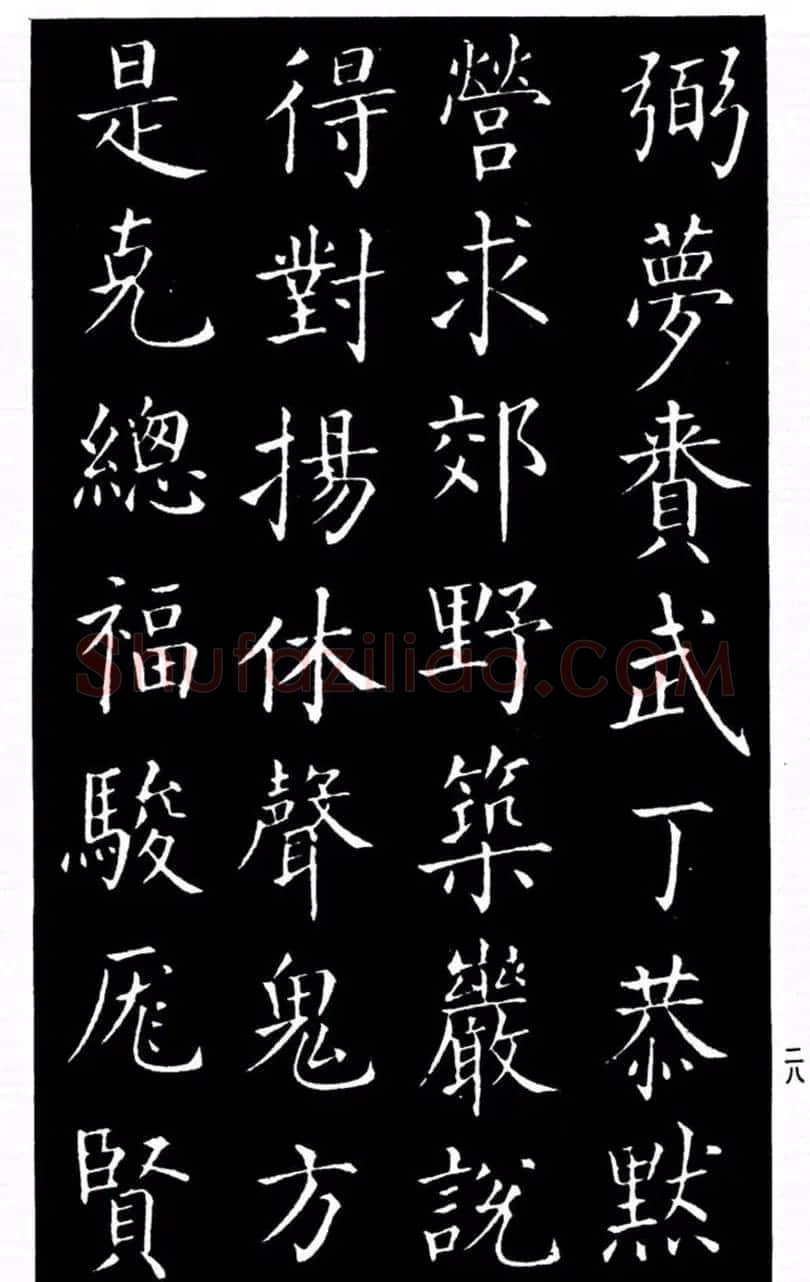 弼夢賚武丁恭默
營求郊野築巖説
得對揚休聲鬼方
是克總福駿厖賢
二八
Shufaziliao.COM